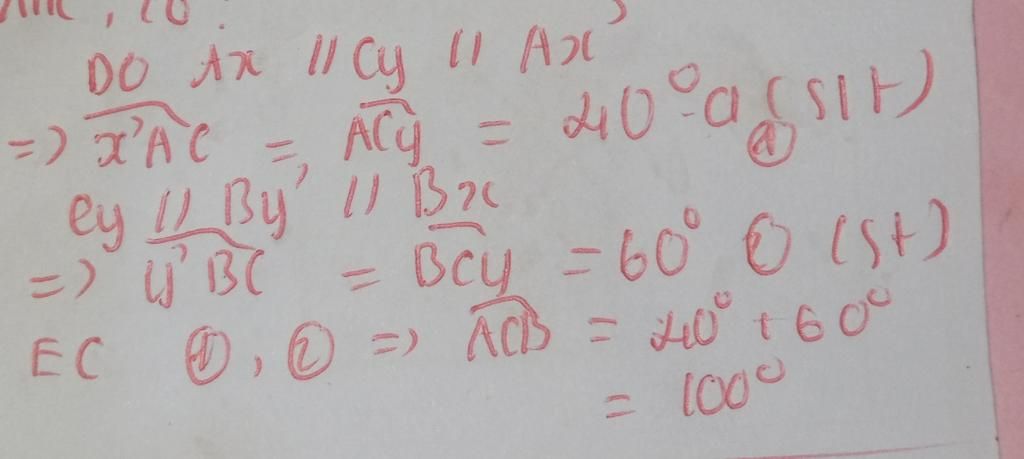 DO Ax // Cy // Ax'
=> x'AC = ACy = 40° (slt) ①
Cy // By' // Bx
=> y'BC = BCy = 60° ② (slt)
①, ② => ACB = 40° + 60°
= 100°